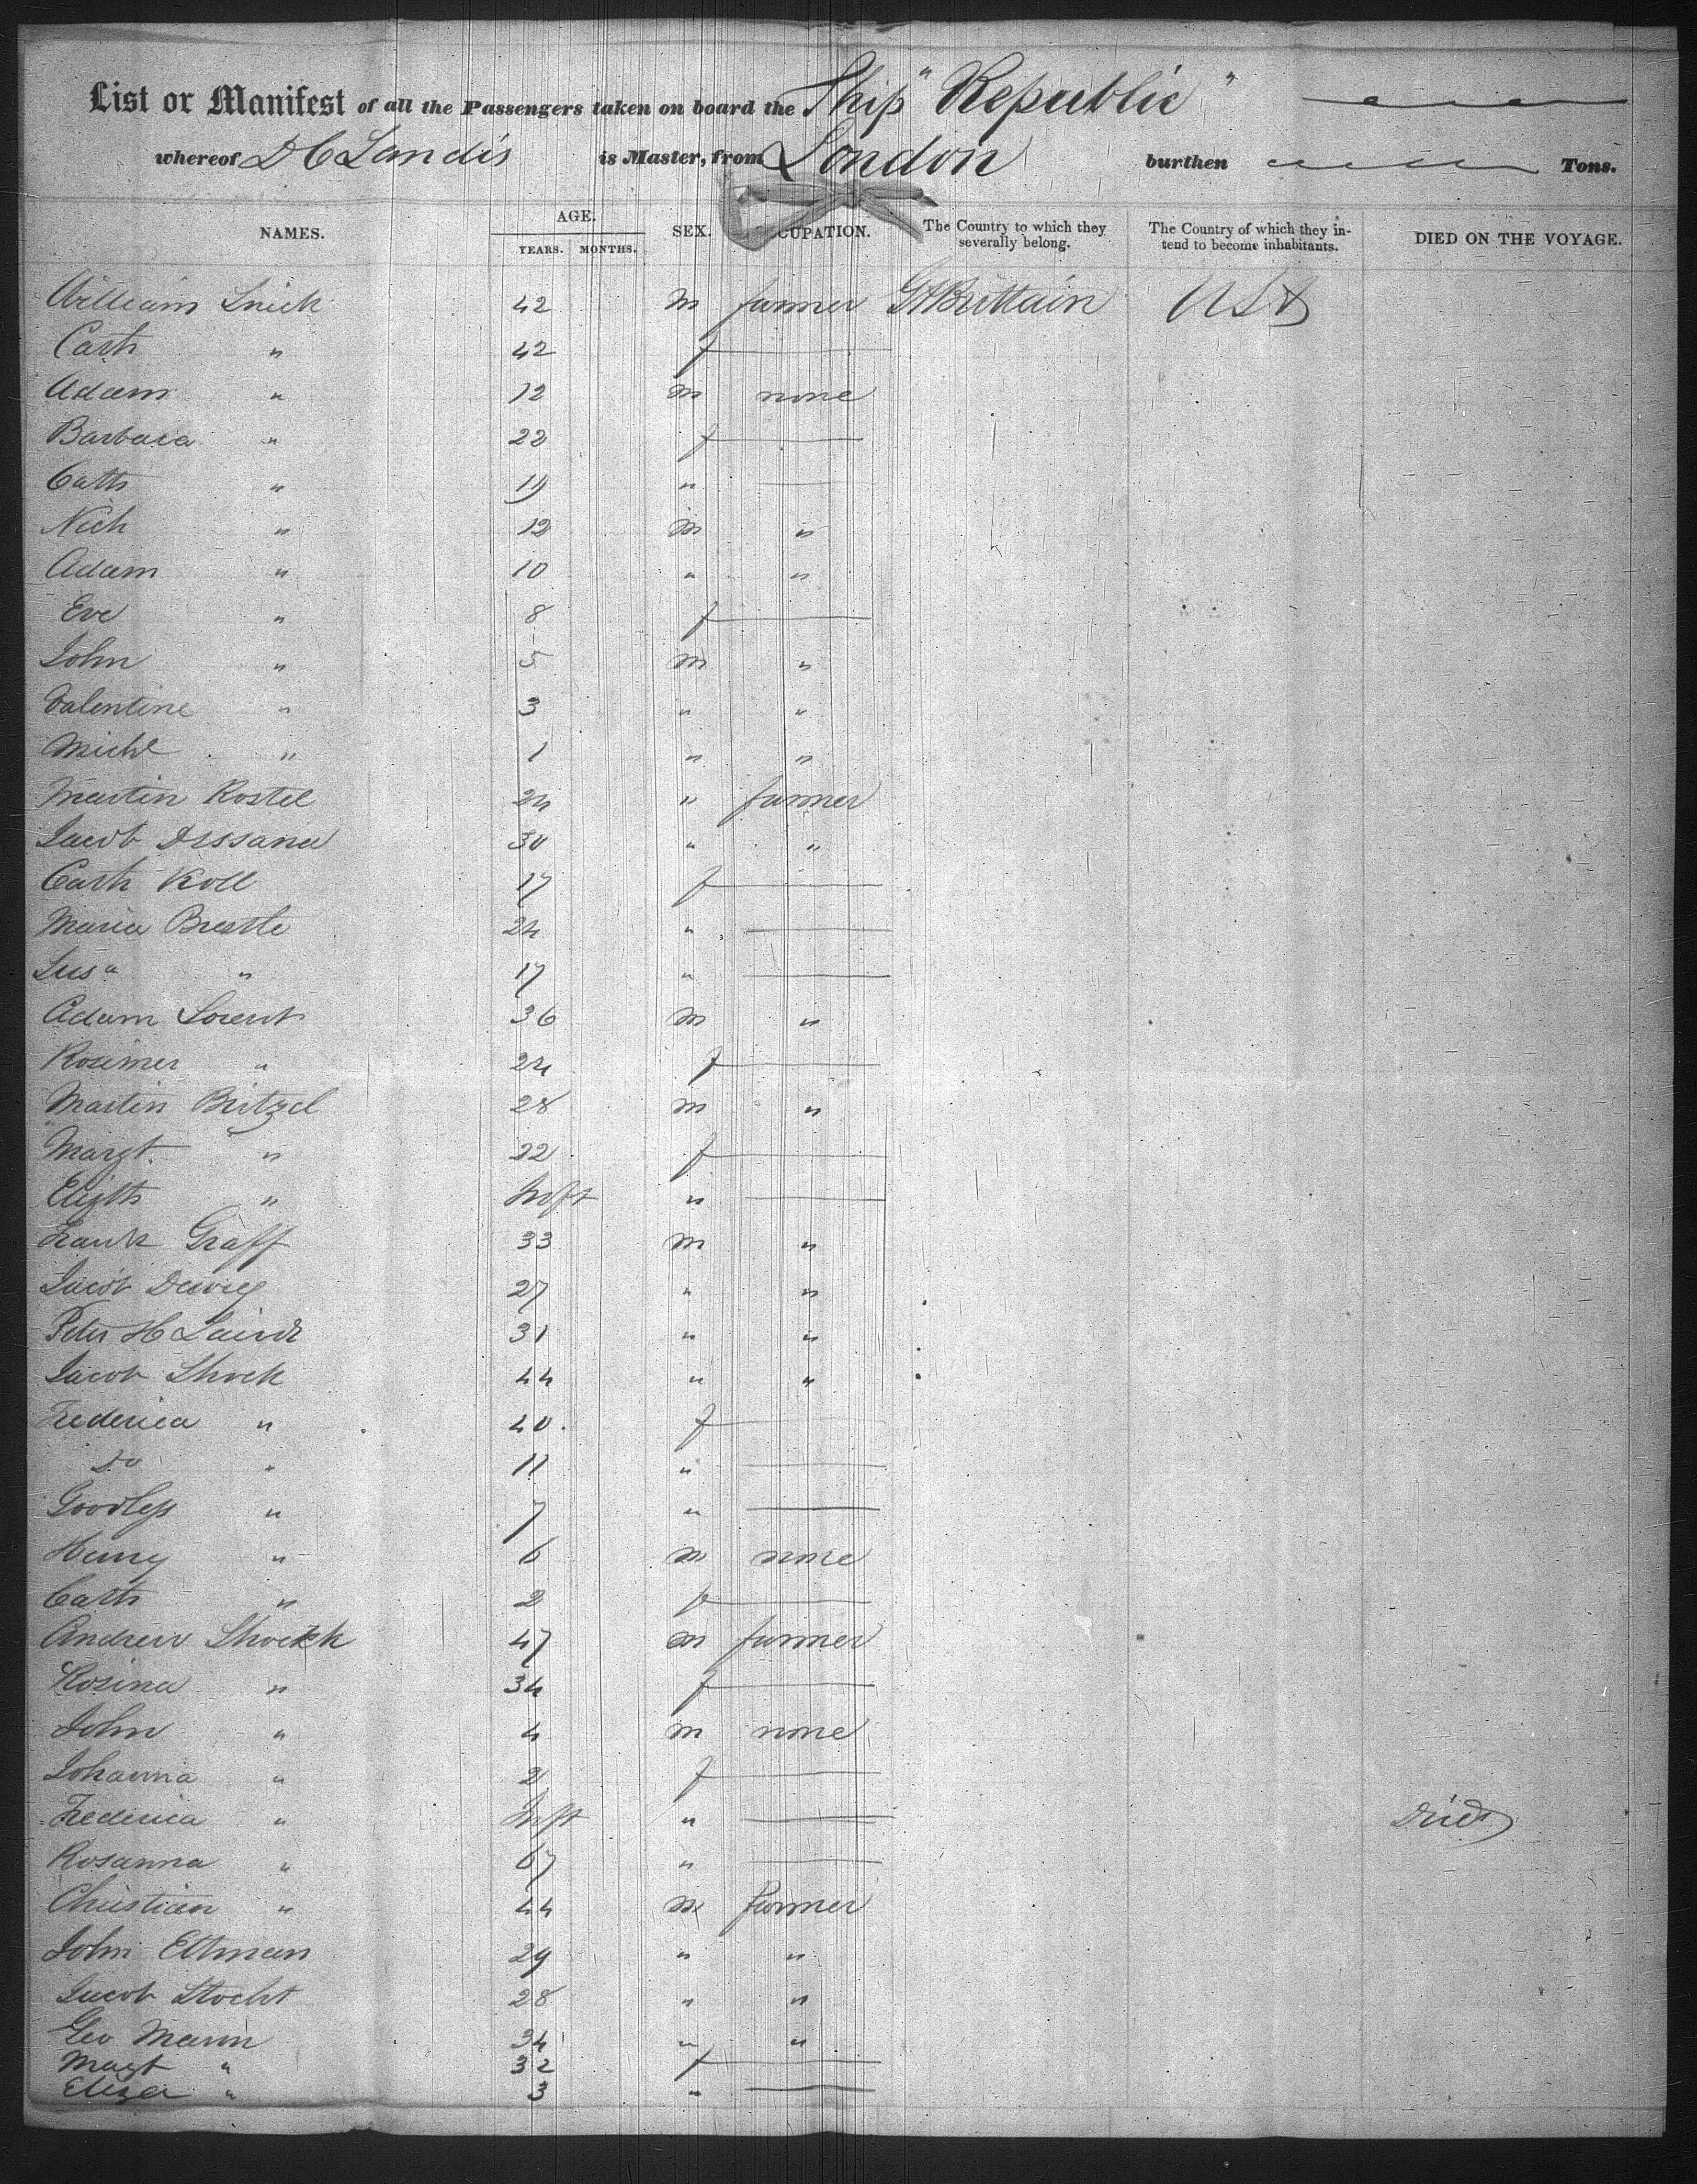 List or Manifest of all the Passengers taken on board the Ship "Republic"
whereof D C Landis is Master, from London burthen Tons.
NAMES. AGE. YEARS. MONTHS. SEX. CUPATION. The Country to which they severally belong. The Country of which they intend to become inhabitants. DIED ON THE VOYAGE.
William 42 m farmer Gt Brittain USA
Cath " 42 f
Adam " 12 m none
Barbara " 22 f
Cath " 19 "
Nich " 12 m "
Adam " 10 " "
Eve " 8 f
John " 5 m "
Valentine " 3 " "
Michl " 1 " "
Martin Rostel 24 " farmer
Jacob 30 " "
Cath Koll 17 f
Maria 24 "
Susa " 17 "
Adam 36 m "
" 24 f
Martin Britzel 28 m "
Margt " 22 f
Elizth " Inft "
Frank Graff 33 m "
Jacob 27 " "
Peter H 31 " "
Jacob Shock 44 " "
Frederica " 40 f
Do " 11 "
" 7 "
Henry " 6 m none
Cath " 2 f
Andrew 47 m farmer
Rosina " 34 f
John " 4 m none
Johanna " 2 f
Frederica " Inft " Died
Rosanna " 67 "
Christian " 44 m farmer
John Eltman 29 " "
Jacob 28 " "
Geo Mann 34 " "
Magt " 32 f
Eliza " 3 "